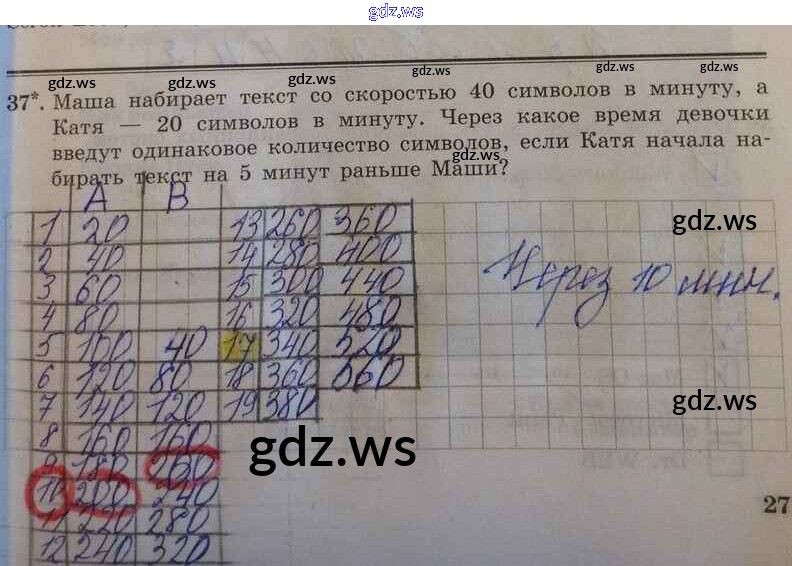 gdz.ws
gdz.ws gdz.ws gdz.ws gdz.ws
37*. Маша набирает текст со скоростью 40 символов в минуту, а
Катя — 20 символов в минуту. Через какое время девочки
введут одинаковое количество символов, если Катя начала на-
gdz.ws
бирать текст на 5 минут раньше Маши?
gdz.ws gdz.ws
A B
1 20 13 260 360
2 40 14 280 400
3 60 15 300 440
4 80 16 320 480
5 100 40 17 340 520
6 120 80 18 360 560
7 140 120 19 380
8 160 160
9 180 200
10 200 240
11 220 280
12 240 320
gdz.ws
Через 10 мин.
gdz.ws
gdz.ws
gdz.ws
Dr. Web
27